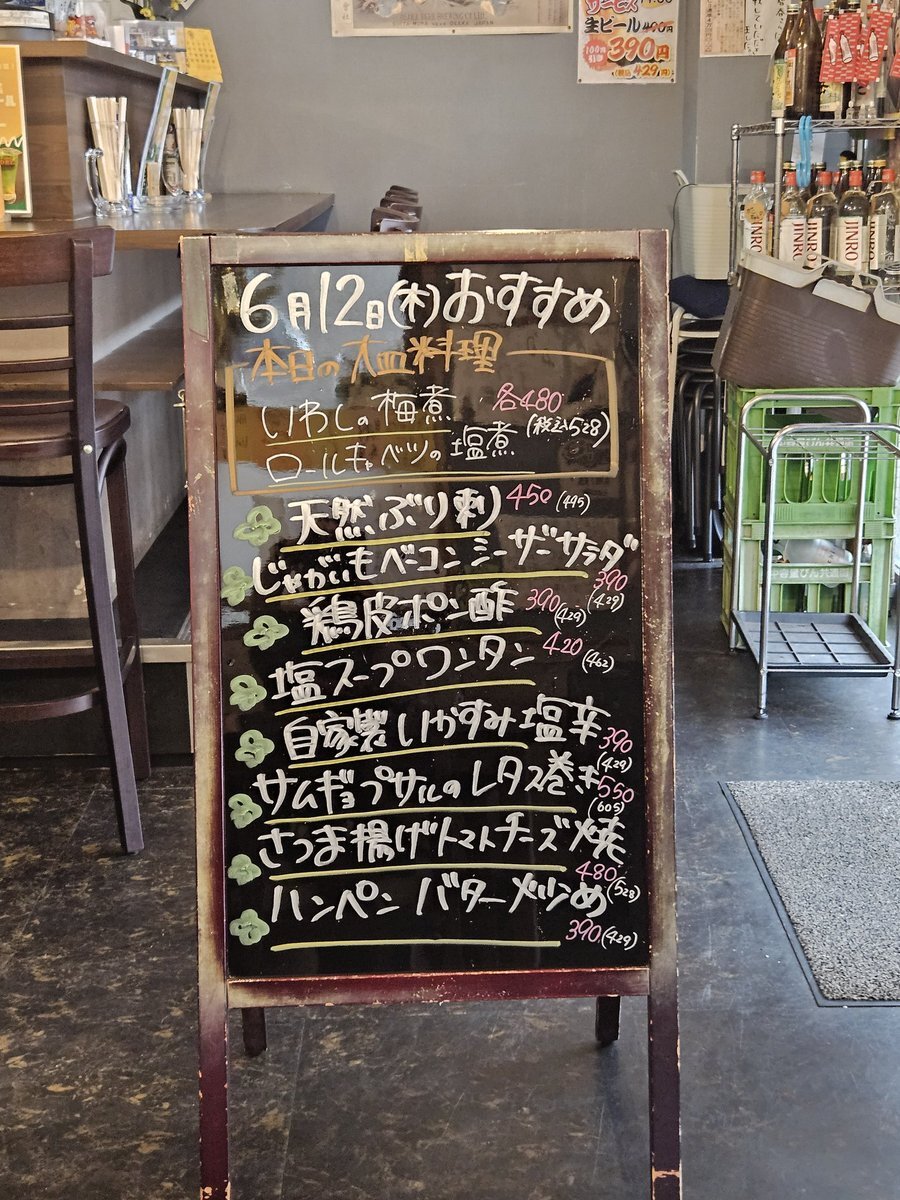 サービス
生ビール
390円
(税込429円)
JINRO
JINRO
JINRO
6月12日(木)おすすめ
本日の大皿料理
いわしの梅煮 各480
ロールキャベツの塩煮 (税込528)
天然ぶり刺 450 (495)
じゃがいもベーコンシーザーサラダ
390 (429)
鶏皮ポン酢 390 (429)
塩スープワンタン 420 (462)
自家製いかすみ塩辛
390 (429)
サムギョプサルのレタス巻き
550 (605)
さつま揚げトマトチーズ焼
480 (528)
ハンペン バター炒め
390 (429)